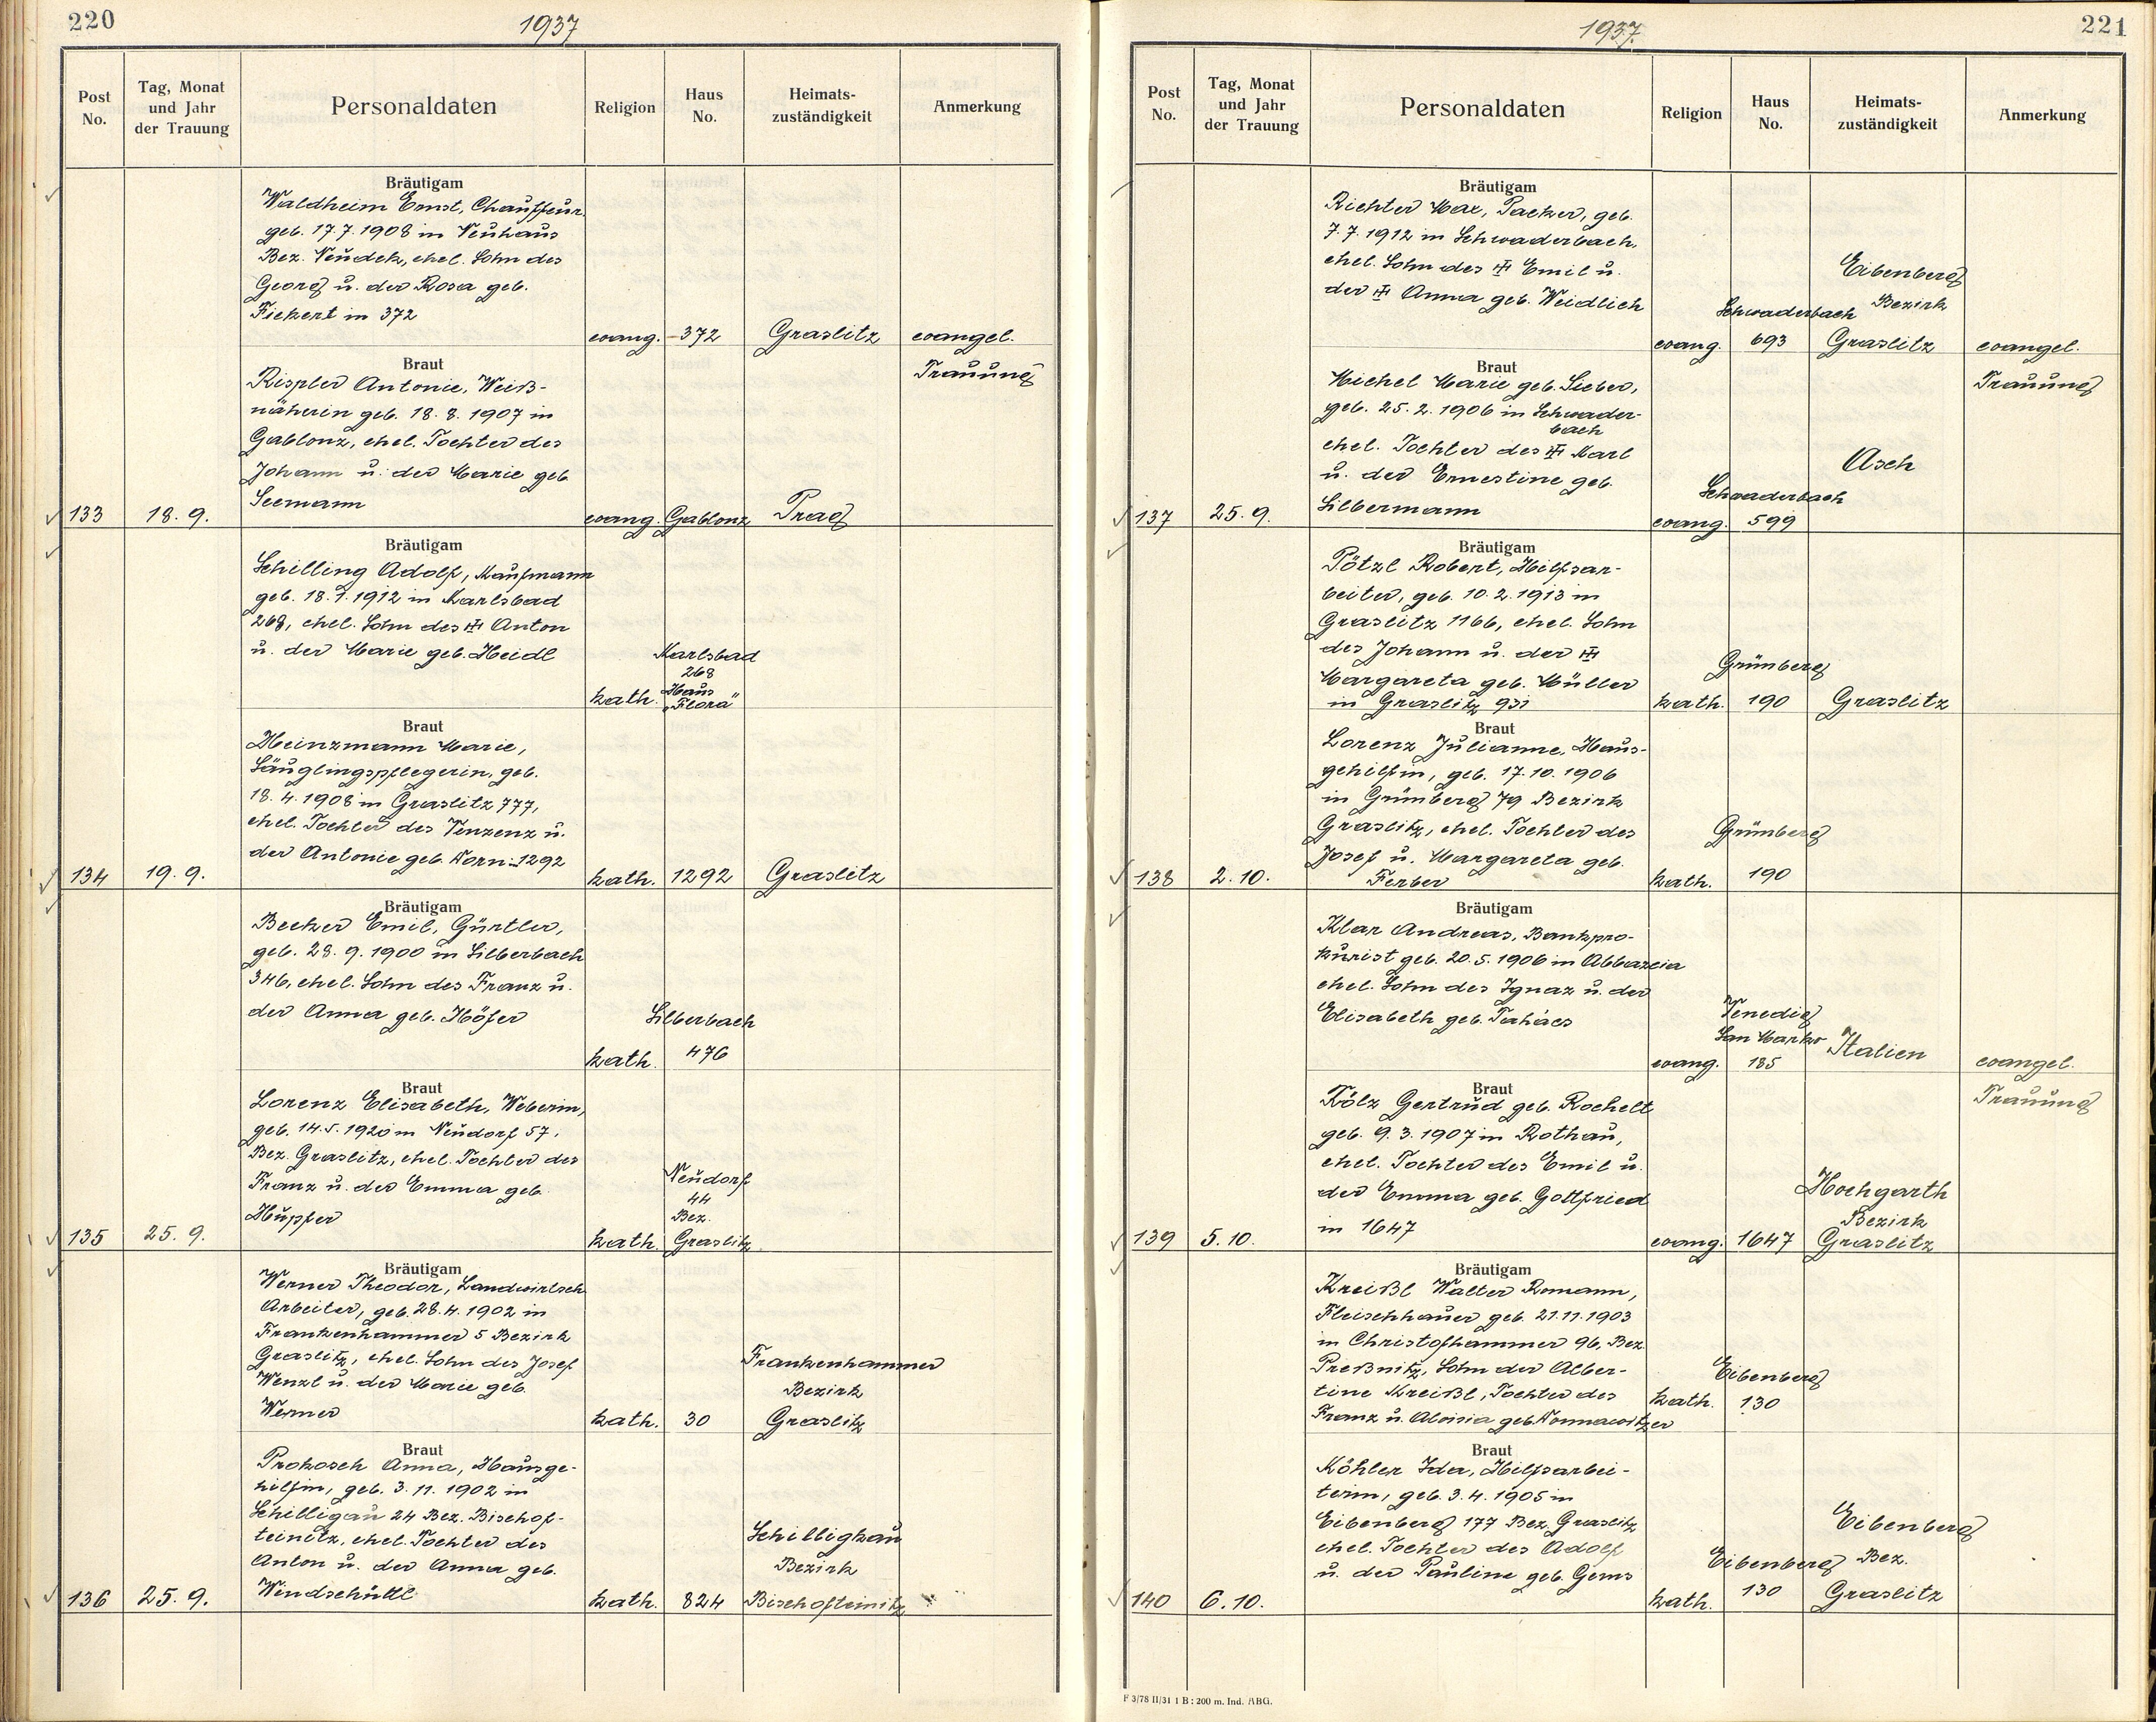 220
1937
Post No.
Tag, Monat und Jahr der Trauung
Personaldaten
Religion
Haus No.
Heimats-zuständigkeit
Anmerkung
Bräutigam
Waldheim Ernst, Chauffeur
geb. 17.7.1908 in Neuhaus
Bez. Neudek, ehel. Sohn des
Georg u. der Rosa geb.
Fickert in 372
evang. 372 Graslitz evangel.
Trauung
Braut
Rispler Antonie, Weiß-
näherin geb. 18. 8. 1907 in
Gablonz, ehel. Tochter des
Johann u. der Marie geb.
Seemann
133 18. 9. evang. Gablonz Prag
Bräutigam
Schilling Adolf, Kaufmann
geb. 18.7.1912 in Karlsbad
268, ehel. Sohn des Anton
u. der Marie geb. Heidl
Karlsbad
268
Haus
kath. "Flora"
Braut
Heinzmann Marie,
Säuglingspflegerin, geb.
18. 4. 1908 in Graslitz 777,
ehel. Tochter des Vinzenz u.
der Antonie geb. Korn: 1292
134 19. 9. kath. 1292 Graslitz
Bräutigam
Becker Emil, Gürtler,
geb. 28. 9. 1900 in Silberbach
346, ehel. Sohn des Franz u.
der Anna geb. Höfer
Silberbach
kath. 476
Braut
Lorenz Elisabeth, Weberin,
geb. 14.5.1920 in Neudorf 57,
Bez. Graslitz, ehel. Tochter des
Franz u. der Emma geb.
Hüpfer
Neudorf
44
Bez.
135 25. 9. kath. Graslitz
Bräutigam
Werner Theodor, Landwirtsch.
Arbeiter, geb. 28.4.1902 in
Frankenhammer 5 Bezirk
Graslitz, ehel. Sohn des Josef
Wenzl u. der Marie geb.
Werner
Frankenhammer
Bezirk
kath. 30 Graslitz
Braut
Prokosch Anna, Hausge-
hilfin, geb. 3. 11. 1902 in
Schilligau 24 Bez. Bischof-
teinitz, ehel. Tochter des
Anton u. der Anna geb.
Windschüttl
Schilligkau
Bezirk
136 25. 9. kath. 824 Bischofteinitz
221
1937.
Post No.
Tag, Monat und Jahr der Trauung
Personaldaten
Religion
Haus No.
Heimats-zuständigkeit
Anmerkung
Bräutigam
Richter Max, Packer, geb.
7. 7. 1912 in Schwaderbach,
ehel. Sohn des Emil u.
der Anna geb. Weidlich
Eibenberg
Schwaderbach Bezirk
evang. 693 Graslitz evangel.
Trauung
Braut
Michel Marie geb. Sieber,
geb. 25. 2. 1906 in Schwader-
bach
ehel. Tochter des Karl
u. der Ernestine geb.
Silbermann
Asch
Schwaderbach
137 25. 9. evang. 599
Bräutigam
Pötzl Robert, Hilfsar-
beiter, geb. 10. 2. 1913 in
Graslitz 1166, ehel. Sohn
des Johann u. der
Margareta geb. Müller
in Graslitz 931
Grünberg
kath. 190 Graslitz
Braut
Lorenz Julianne, Haus-
gehilfin, geb. 17. 10. 1906
in Grünberg 79 Bezirk
Graslitz, ehel. Tochter des
Josef u. Margareta geb.
Ferber
Grünberg
138 2. 10. kath. 190
Bräutigam
Klar Andreas, Bankpro-
kurist geb. 20. 5. 1906 in Abbazia
ehel. Sohn des Ignaz u. der
Elisabeth geb. Takács
Venedig
San Marko
evang. 185 Italien evangel.
Trauung
Braut
Kölz Gertrud geb. Rochelt
geb. 9. 3. 1907 in Rothau,
ehel. Tochter des Emil u.
der Emma geb. Gottfried
in 1647
Hochgarth
Bezirk
139 5. 10. evang. 1647 Graslitz
Bräutigam
Kreißl Walter Romann,
Fleischhauer geb. 21. 11. 1903
in Christofhammer 96, Bez.
Preßnitz, Sohn der Alber-
tine Kreißl, Tochter des
Franz u. Aloisia geb.
Eibenberg
kath. 130
Braut
Köhler Ida, Hilfsarbei-
terin, geb. 3. 4. 1905 in
Eibenberg 177 Bez. Graslitz
ehel. Tochter des Adolf
u. der Pauline geb. Gems
Eibenberg
Eibenberg Bez.
140 6. 10. kath. 130 Graslitz
F 3/78 II/31 1 B : 200 m. Ind. ABG.